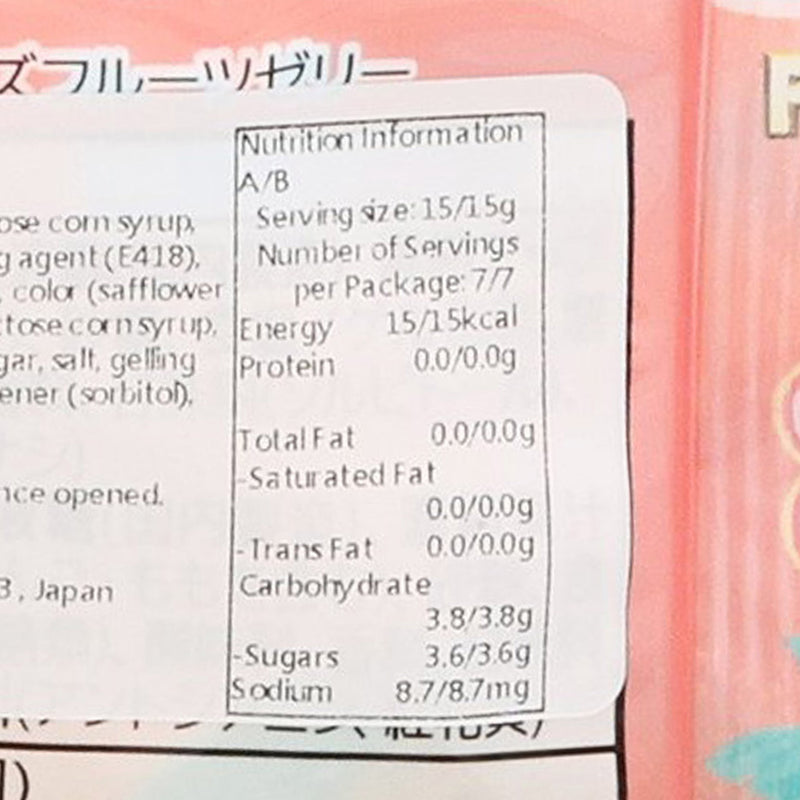 ズフルーツゼリー
Nutrition Information
A/B
Serving size: 15/15g
Number of Servings
per Package: 7/7
Energy 15/15kcal
Protein 0.0/0.0g
Total Fat 0.0/0.0g
-Saturated Fat
0.0/0.0g
-Trans Fat 0.0/0.0g
Carbohydrate
3.8/3.8g
-Sugars 3.6/3.6g
Sodium 8.7/8.7mg
ose corn syrup,
g agent (E418),
, color (safflower
tose corn syrup,
gar, salt, gelling
ener (sorbitol),
nce opened.
3, Japan